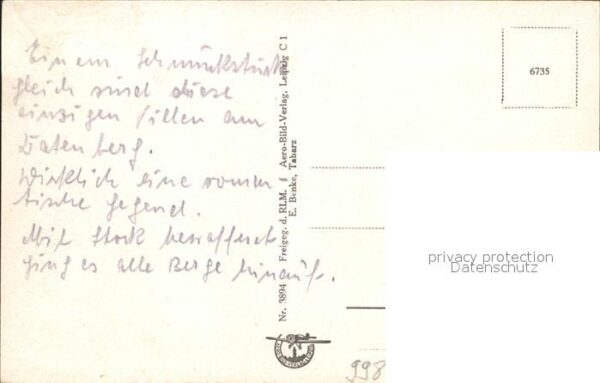 Einem Schmuckstück
gleich sind diese
einzigen Villen am
Datenberg.
Wirklich eine roman
tische Gegend.
Mit Stock
ging es alle Berge hinauf.
Nr. 3894 Freigeg. d. RLM. Aero-Bild-Verlag, Leipzig C 1
E. Benke, Tabarz
6735
privacy protection
Datenschutz
998